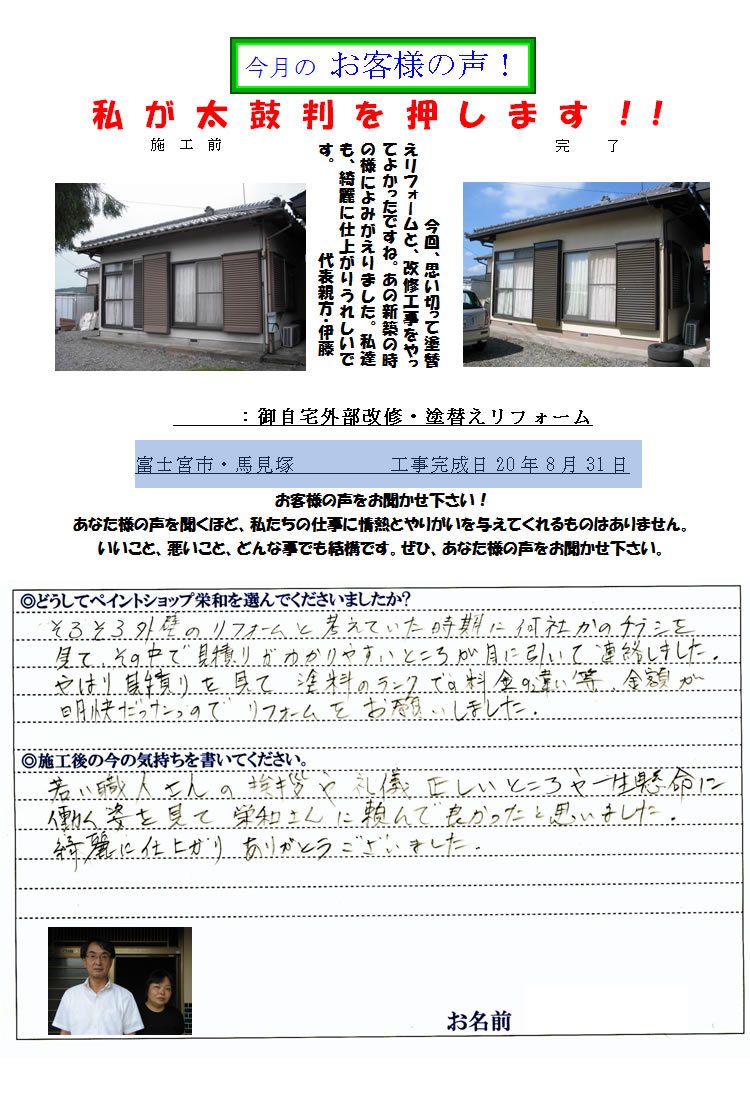 今月の お客様の声！
私が太鼓判を押します！！
施工前
完了
今回、思い切って塗替
えリフォームと、改修工事をやっ
てよかったですね。あの新築の時
の様によみがえりました。私達
も、綺麗に仕上がりうれしいで
す。
代表親方・伊藤
：御自宅外部改修・塗替えリフォーム
富士宮市・馬見塚 工事完成日20年8月31日
お客様の声をお聞かせ下さい！
あなた様の声を聞くほど、私たちの仕事に情熱とやりがいを与えてくれるものはありません。
いいこと、悪いこと、どんな事でも結構です。ぜひ、あなた様の声をお聞かせ下さい。
◎どうしてペイントショップ栄和を選んでくださいましたか？
そろそろ外壁のリフォームと考えていた時期に何社かのチラシを
見て、その中で見積りがわかりやすいところが目に引いて連絡しました。
やはり見積りを見て塗料のランクでの料金の違い等、金額が
明快だったのでリフォームをお願いしました。
◎施工後の今の気持ちを書いてください。
若い職人さんの挨拶や礼儀正しいところや一生懸命に
働く姿を見て栄和さんに頼んで良かったと思いました。
綺麗に仕上がりありがとうございました。
お名前